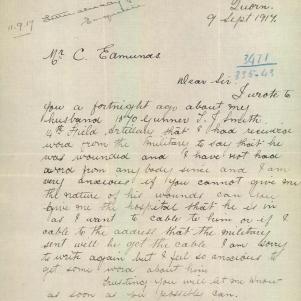 11.9.17
Quorn.
9 Sept 1917.
Mr. C. Edmunds
3471
Dear Sir
I wrote to
you a fortnight ago about my
husband 1870 Gunner S. J. Smith.
4th Field Artillery that I had received
word from the military to say that he
was wounded and I have not had
a word from any body since and I am
very anxious if you cannot give me
the nature of his wounds can you
give me the hospital that he is in
as I want to cable to him or if I
cable to the address that the military
sent will he get the cable I am sorry
to write again but I feel so anxious to
get some word about him
Trusting you will let me know
as soon as you possibley can.